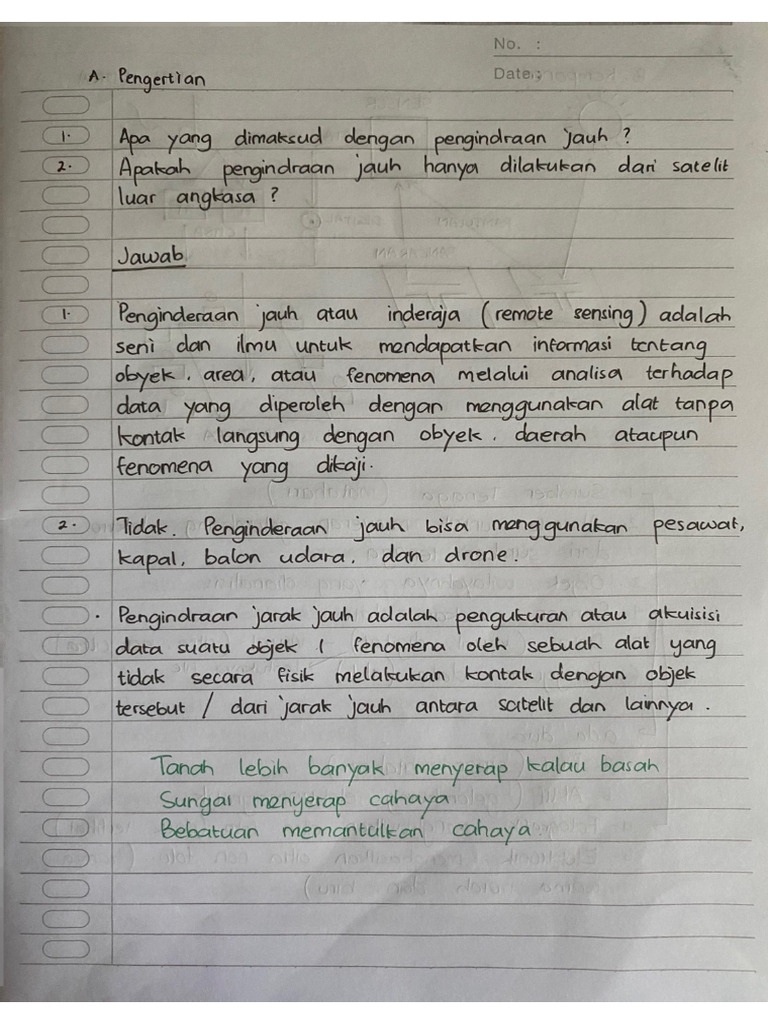 No. :
Date :
A. Pengertian
1. Apa yang dimaksud dengan pengindraan jauh ?
2. Apakah pengindraan jauh hanya dilakukan dari satelit
luar angkasa ?
Jawab
1. Penginderaan jauh atau inderaja (remote sensing) adalah
seni dan ilmu untuk mendapatkan informasi tentang
obyek, area, atau fenomena melalui analisa terhadap
data yang diperoleh dengan menggunakan alat tanpa
kontak langsung dengan obyek, daerah ataupun
fenomena yang dikaji.
2. Tidak. Penginderaan jauh bisa menggunakan pesawat,
kapal, balon udara, dan drone.
• Pengindraan jarak jauh adalah pengukuran atau akuisisi
data suatu objek / fenomena oleh sebuah alat yang
tidak secara fisik melakukan kontak dengan objek
tersebut / dari jarak jauh antara satelit dan lainnya.
Tanah lebih banyak menyerap kalau basah
Sungai menyerap cahaya
Bebatuan memantulkan cahaya.